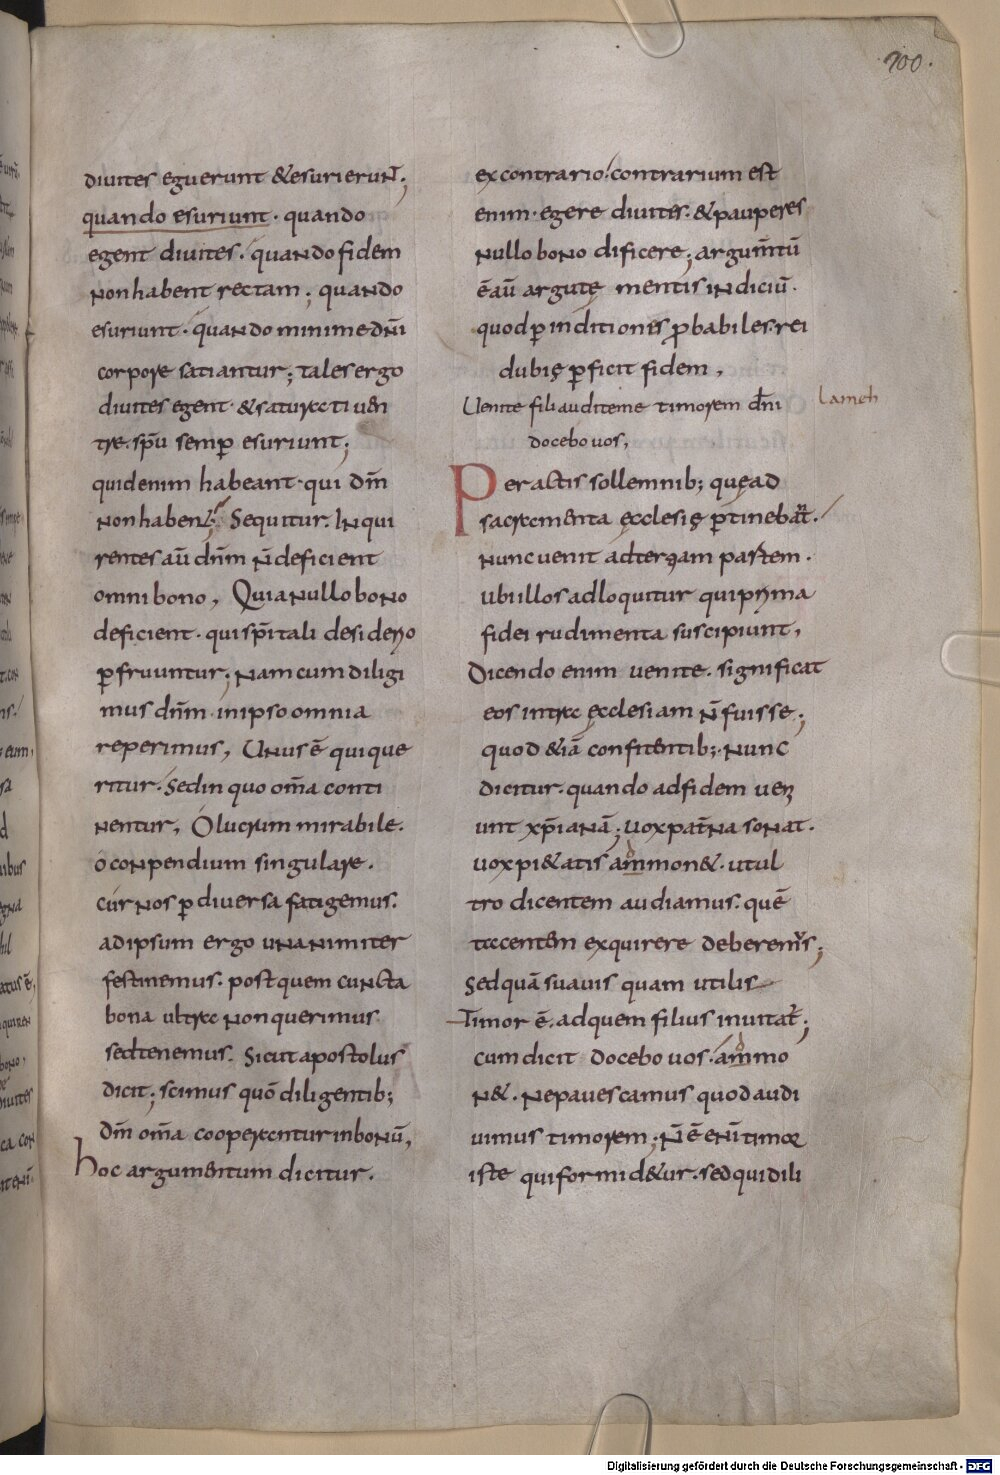 200.
diuites eguerunt &esurierunt̄;
quando esuriunt· quando
egent diuites. quando fidem
non habent rectam; quando
esuriunt· quando minime dn̄i
corpore satiantur; tales ergo
diuites egent· & saturati uen
tre. spū semꝑ esuriunt;
quid enim habeant· qui dm̄
non habent; Sequitur. Inqui
rentes aū dnm̄ n̄ deficient
omni bono, Quia nullo bono
deficient· qui spītali desiderio
ꝑfruuntur; nam cum diligi
mus dnm̄· in ipso omnia
reperimus, Unus ē qui que
ritur. Sed in quo om̄a conti
nentur, O lucrum mirabile.
o conpendium singulare.
cur nos ꝑ diuersa fatigemus.
ad ipsum ergo unanimiter
festinemus. post quem cuncta
bona ultra non querimus
sed tenemus. Sicut apostolus
dicit; scimus quō diligentib;
dm̄ om̄a cooperantur in bonū,
hoc argumentum dicitur.
ex contrario. contrarium est
enim· egere diuites. & pauperes
nullo bono dificere; argum̄tū
ē aū argutę mentis indiciū.
quod ꝑ inditionis ꝓbabiles rei
dubię ꝑficit fidem,
Uenite fili audite me timorem dn̄i
docebo uos,
Lameh
Peractis sollemnib; quę ad
sacramenta ęcclesię ꝑtinebat̄.
nunc uenit ad tergam partem.
ubi illos adloquitur qui prima
fidei rudimenta suscipiunt,
Dicendo enim uenite. significat
eos intra ęcclesiam n̄ fuisse;
quod &iā confitentib; nunc
dicitur. quando ad fidem uen
unt xp̄ianā; uox pat̄na sonat.
uox pi&atis ammon&. ut ul
tro dicentem audiamus. quē
tacentem exquirere deberem's;
Sed quā suauis quam utilis
Timor ē. ad quem filius inuitat̄;
cum dicit docebo uos. ammo
n&. ne pauescamus quod audi
uimus timorem; n̄ ē enī timor
iste qui formid&ur. sed qui dili
Digitalisierung gefördert durch die Deutsche Forschungsgemeinschaft - DFG